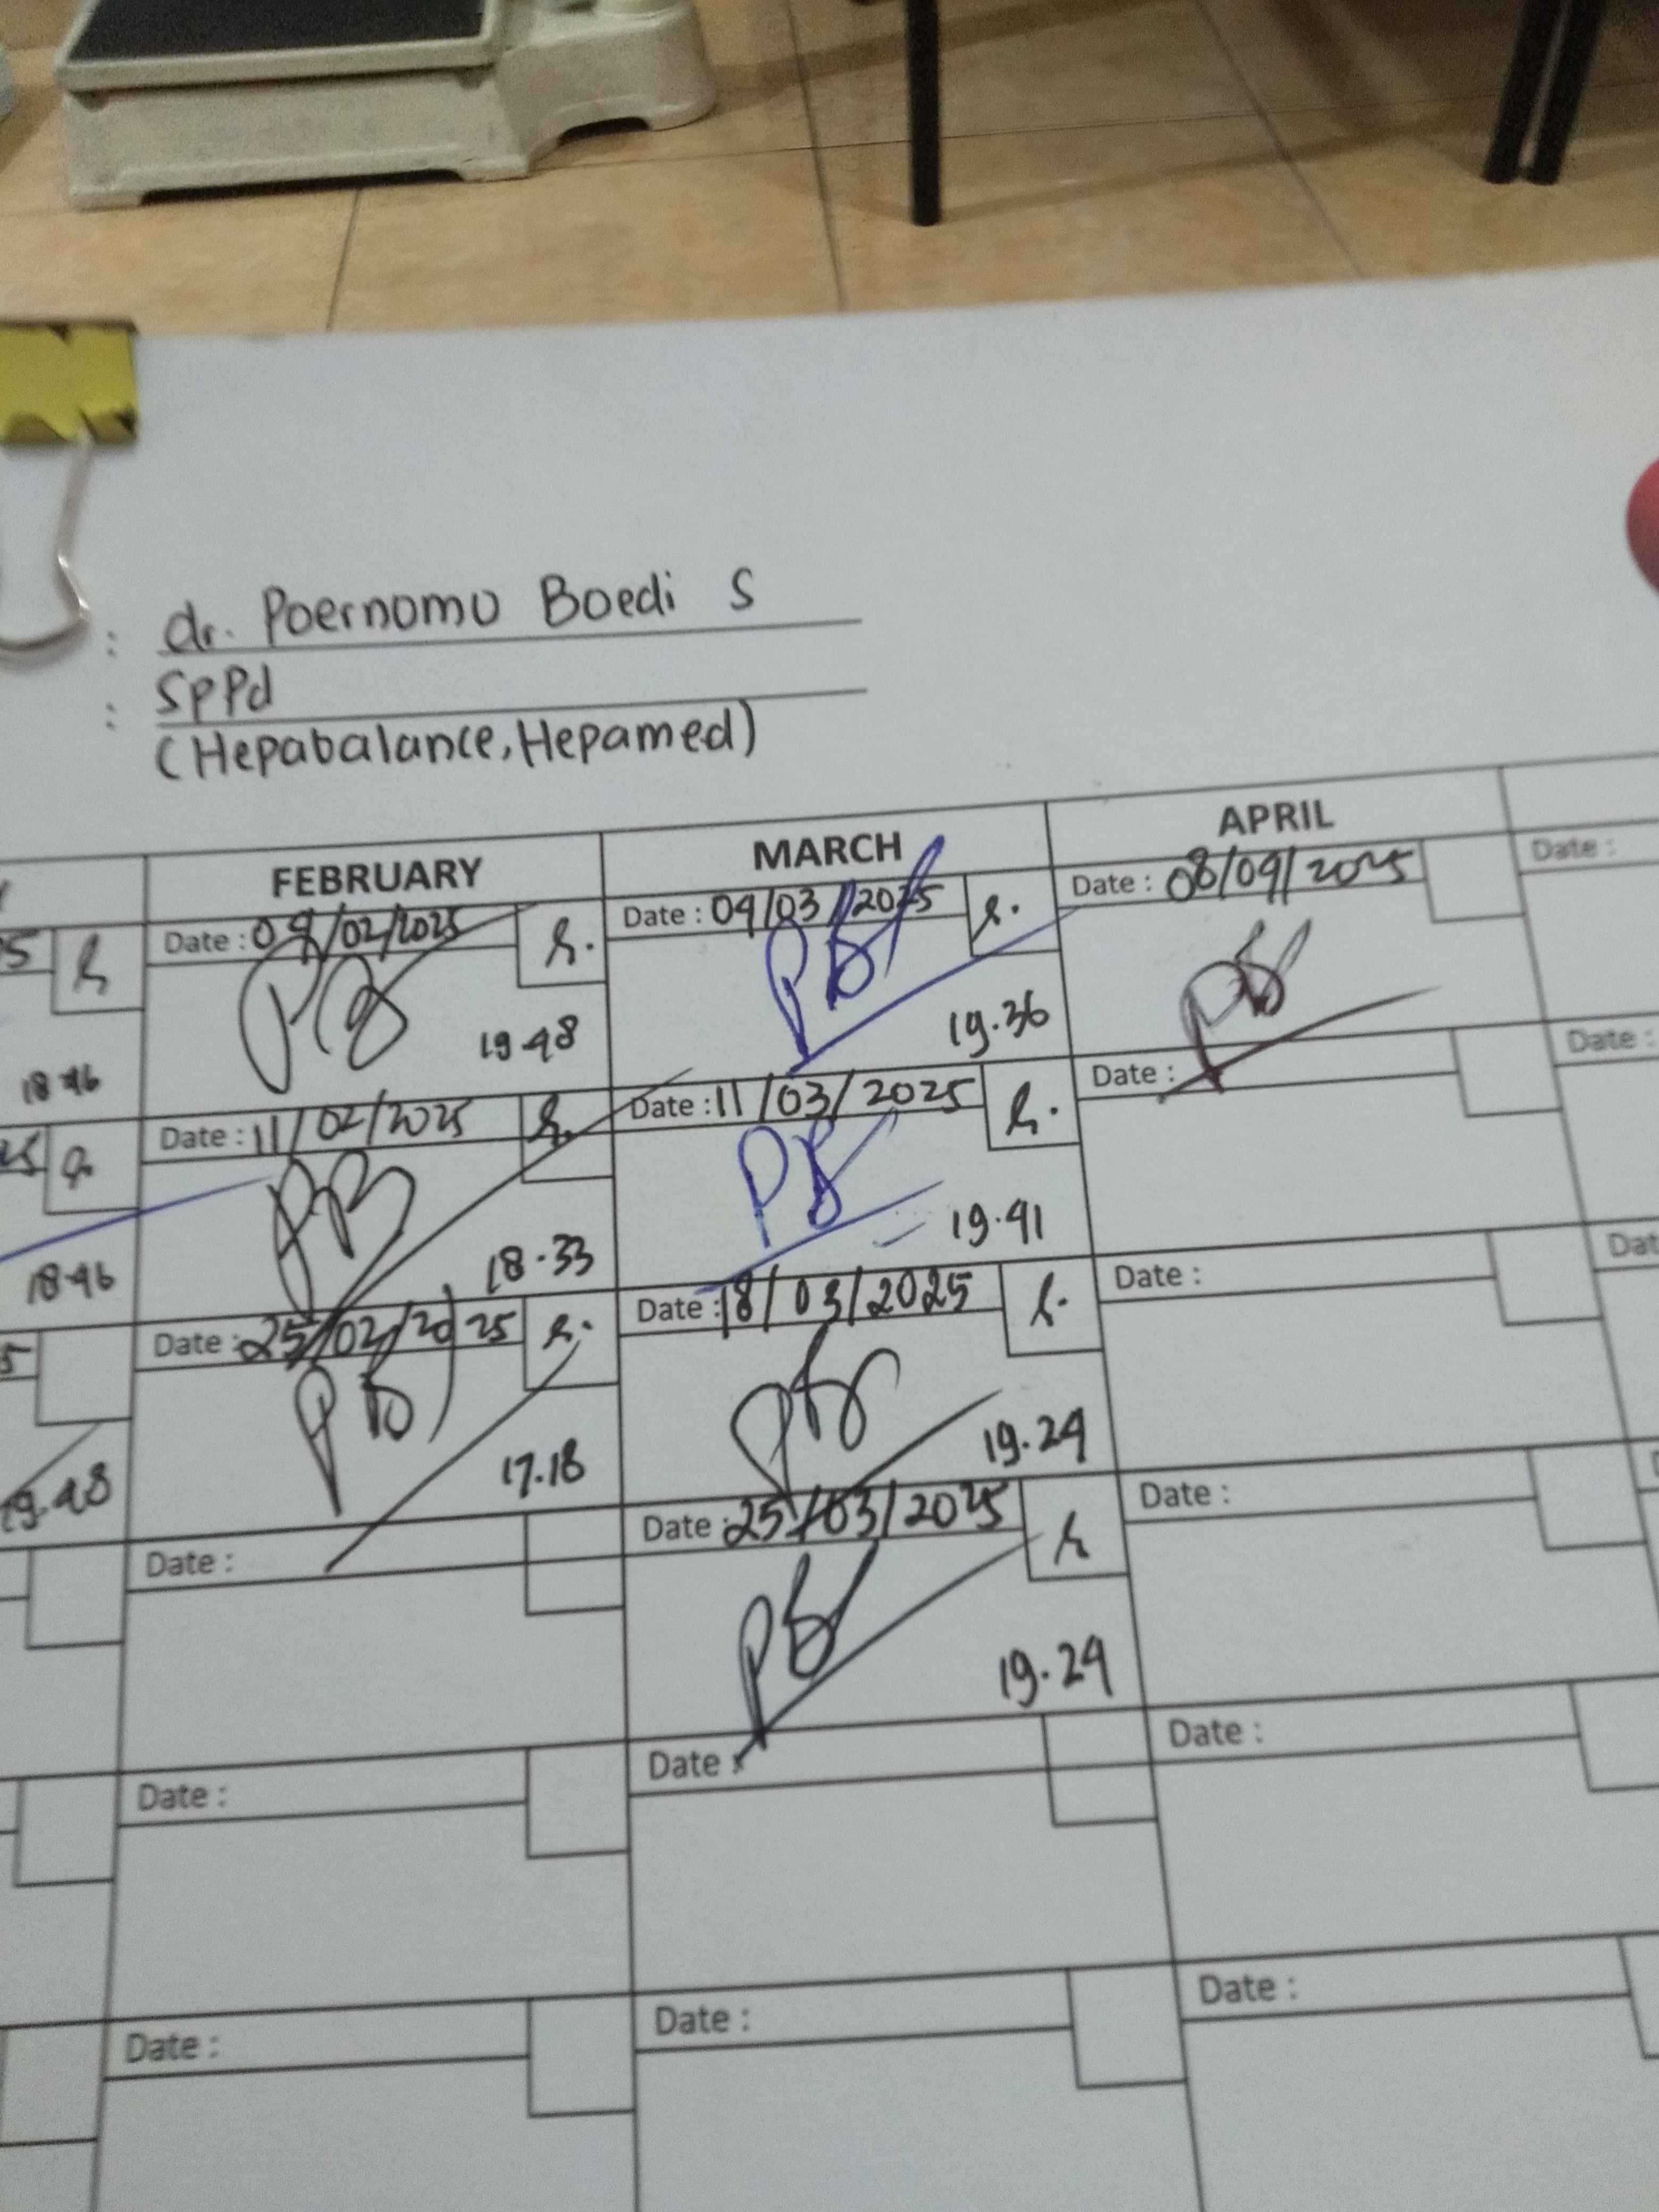 : dr. Poernomo Boedi S
: SpPd
(Hepabalance, Hepamed)
FEBRUARY MARCH APRIL
Date : 04/02/2025 Date : 04/03/2025 Date : 08/04/2025 Date :
18.46 19.48 19.36
Date : 11/02/2025 Date : 11/03/2025 Date : Date :
18.46 18.33 19.41
Date : 25/02/2025 Date : 18/03/2025 Date :
19.48 17.18 19.24
Date : Date : 25/03/2025 Date :
19.24
Date : Date : Date :
Date : Date : Date :